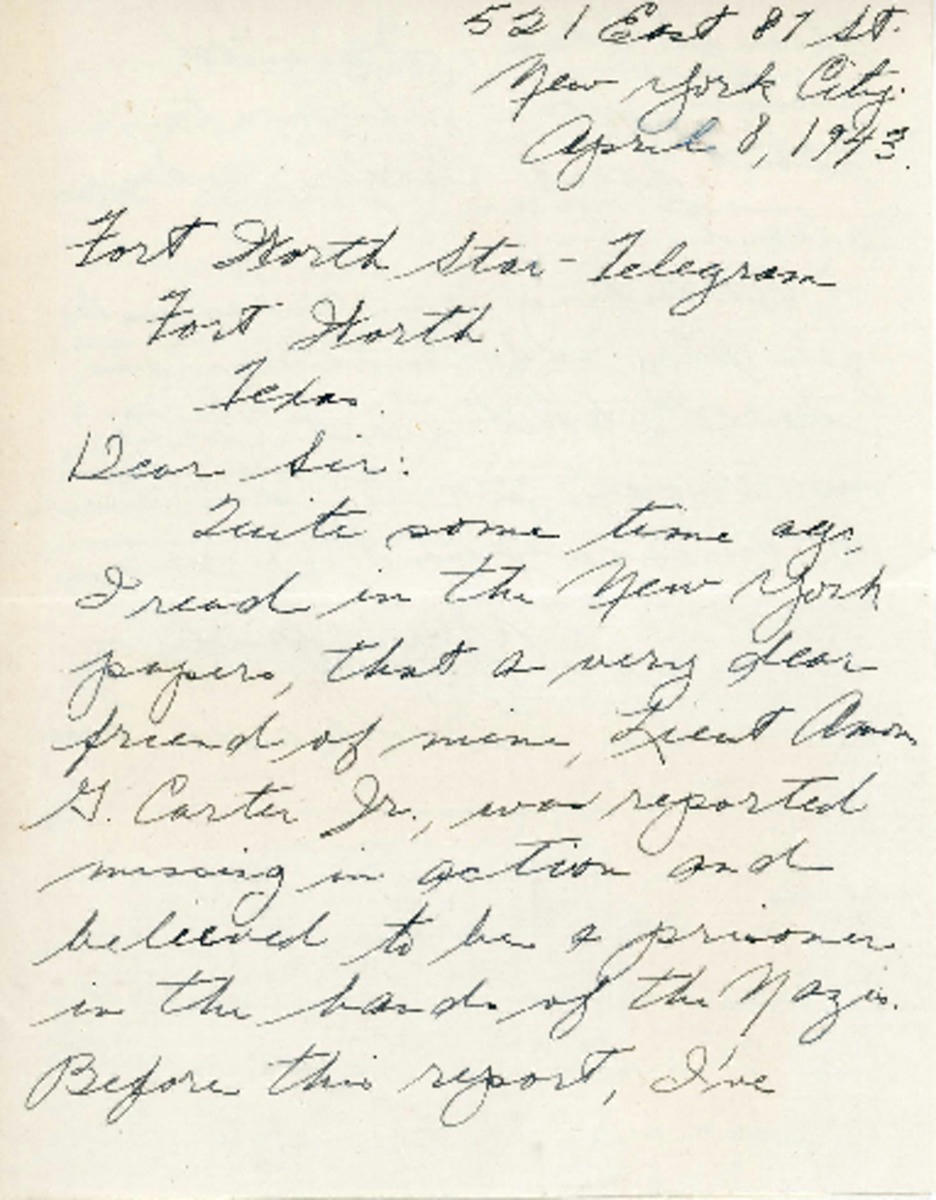 521 East 87 St.
New York City.
April 8, 1943.
Fort Worth Star-Telegram
Fort Worth
Texas.
Dear Sir:
Quite some time ago,
I read in the New York
papers, that a very dear
friend of mine, Lieut Amon
G. Carter Jr., was reported
missing in action and
believed to be a prisoner
in the hands of the Nazis.
Before this report, I've